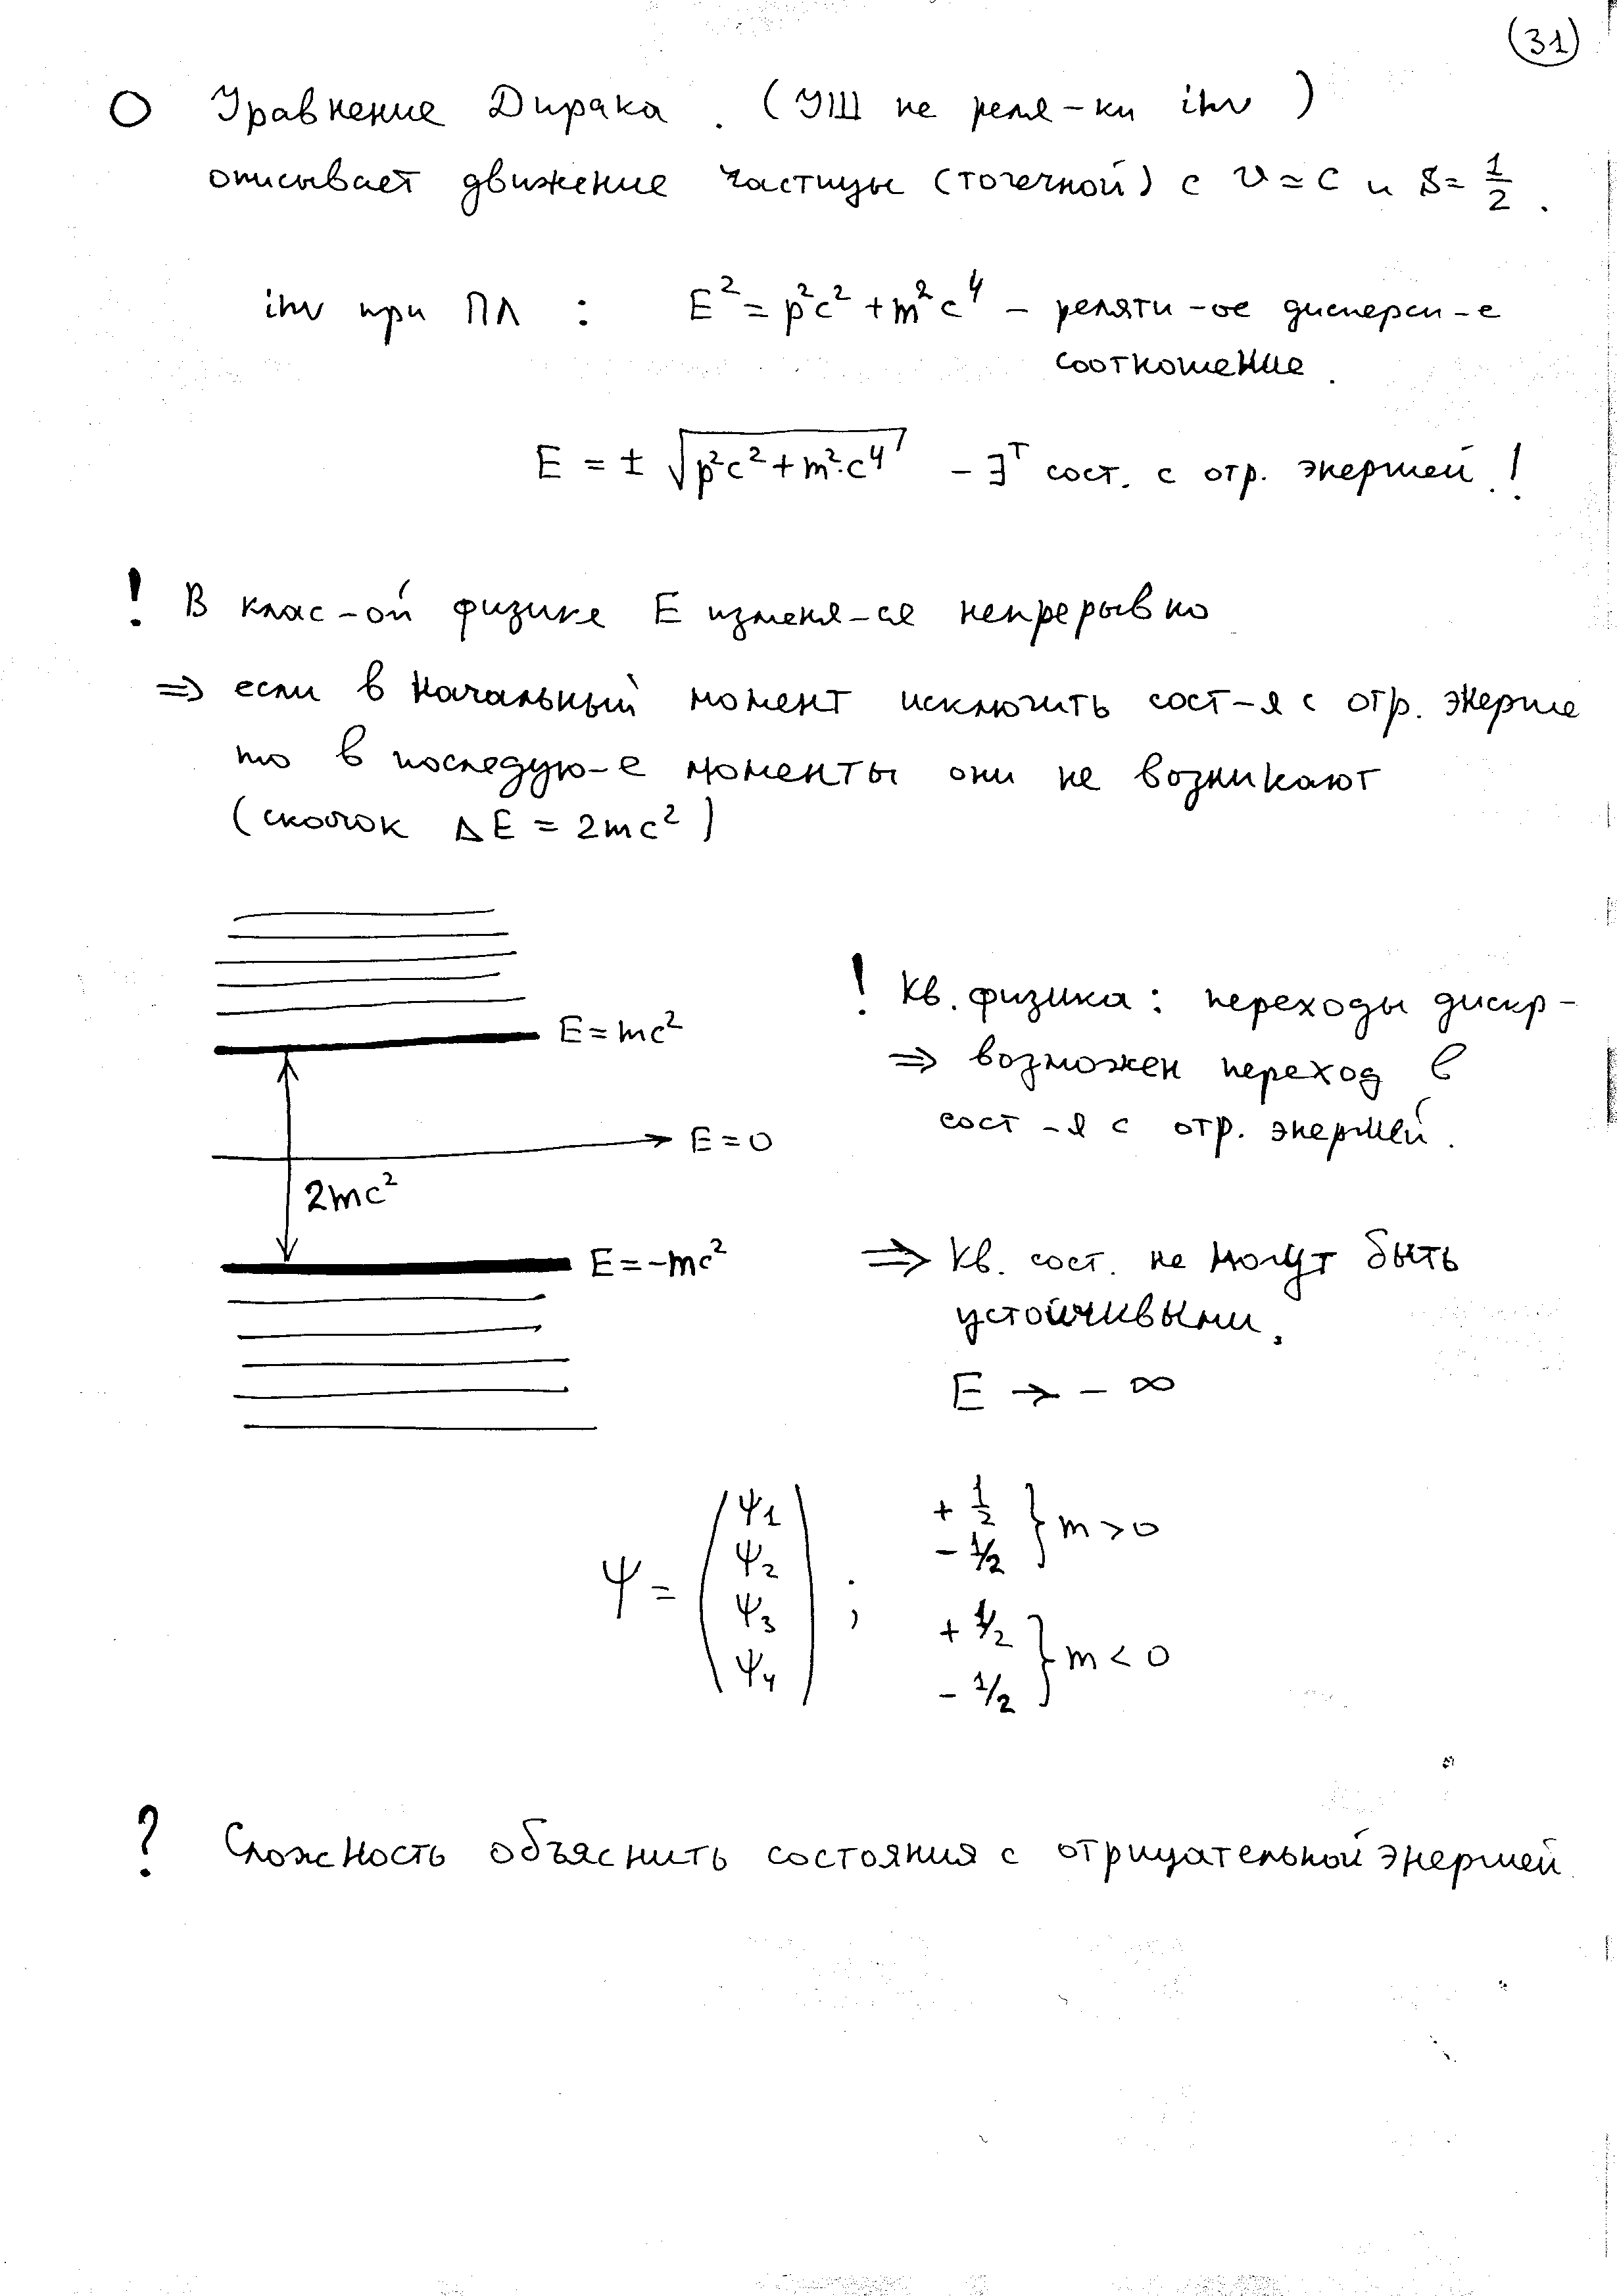 (31)
О Уравнение Дирака. (УШ не реля-ки inv)
описывает движение частицы (точечной) с v ≃ c и S = 1/2.
inv при ПЛ : E² = p²c² + m²c⁴ – реляти-ое дисперси-е
соотношение.
E = ± √(p²c² + m²·c⁴) – ∃ᵀ сост. с отр. энергией.!
! В клас-ой физике E изменя-ся непрерывно
⇒ если в начальный момент исключить сост-я с отр. энергие
то в последую-е моменты они не возникают
(скачок ΔE = 2mc²)
E = mc²
! Кв. физика: переходы дискр-
⇒ возможен переход в
сост-я с отр. энергией.
E = 0
2mc²
E = -mc²
⇒ Кв. сост. не могут быть
устойчивыми.
E → - ∞
Ψ = (Ψ1 Ψ2 Ψ3 Ψ4) ;
+ 1/2
- 1/2 } m > 0
+ 1/2
- 1/2 } m < 0
? Сложность объяснить состояния с отрицательной энергией.